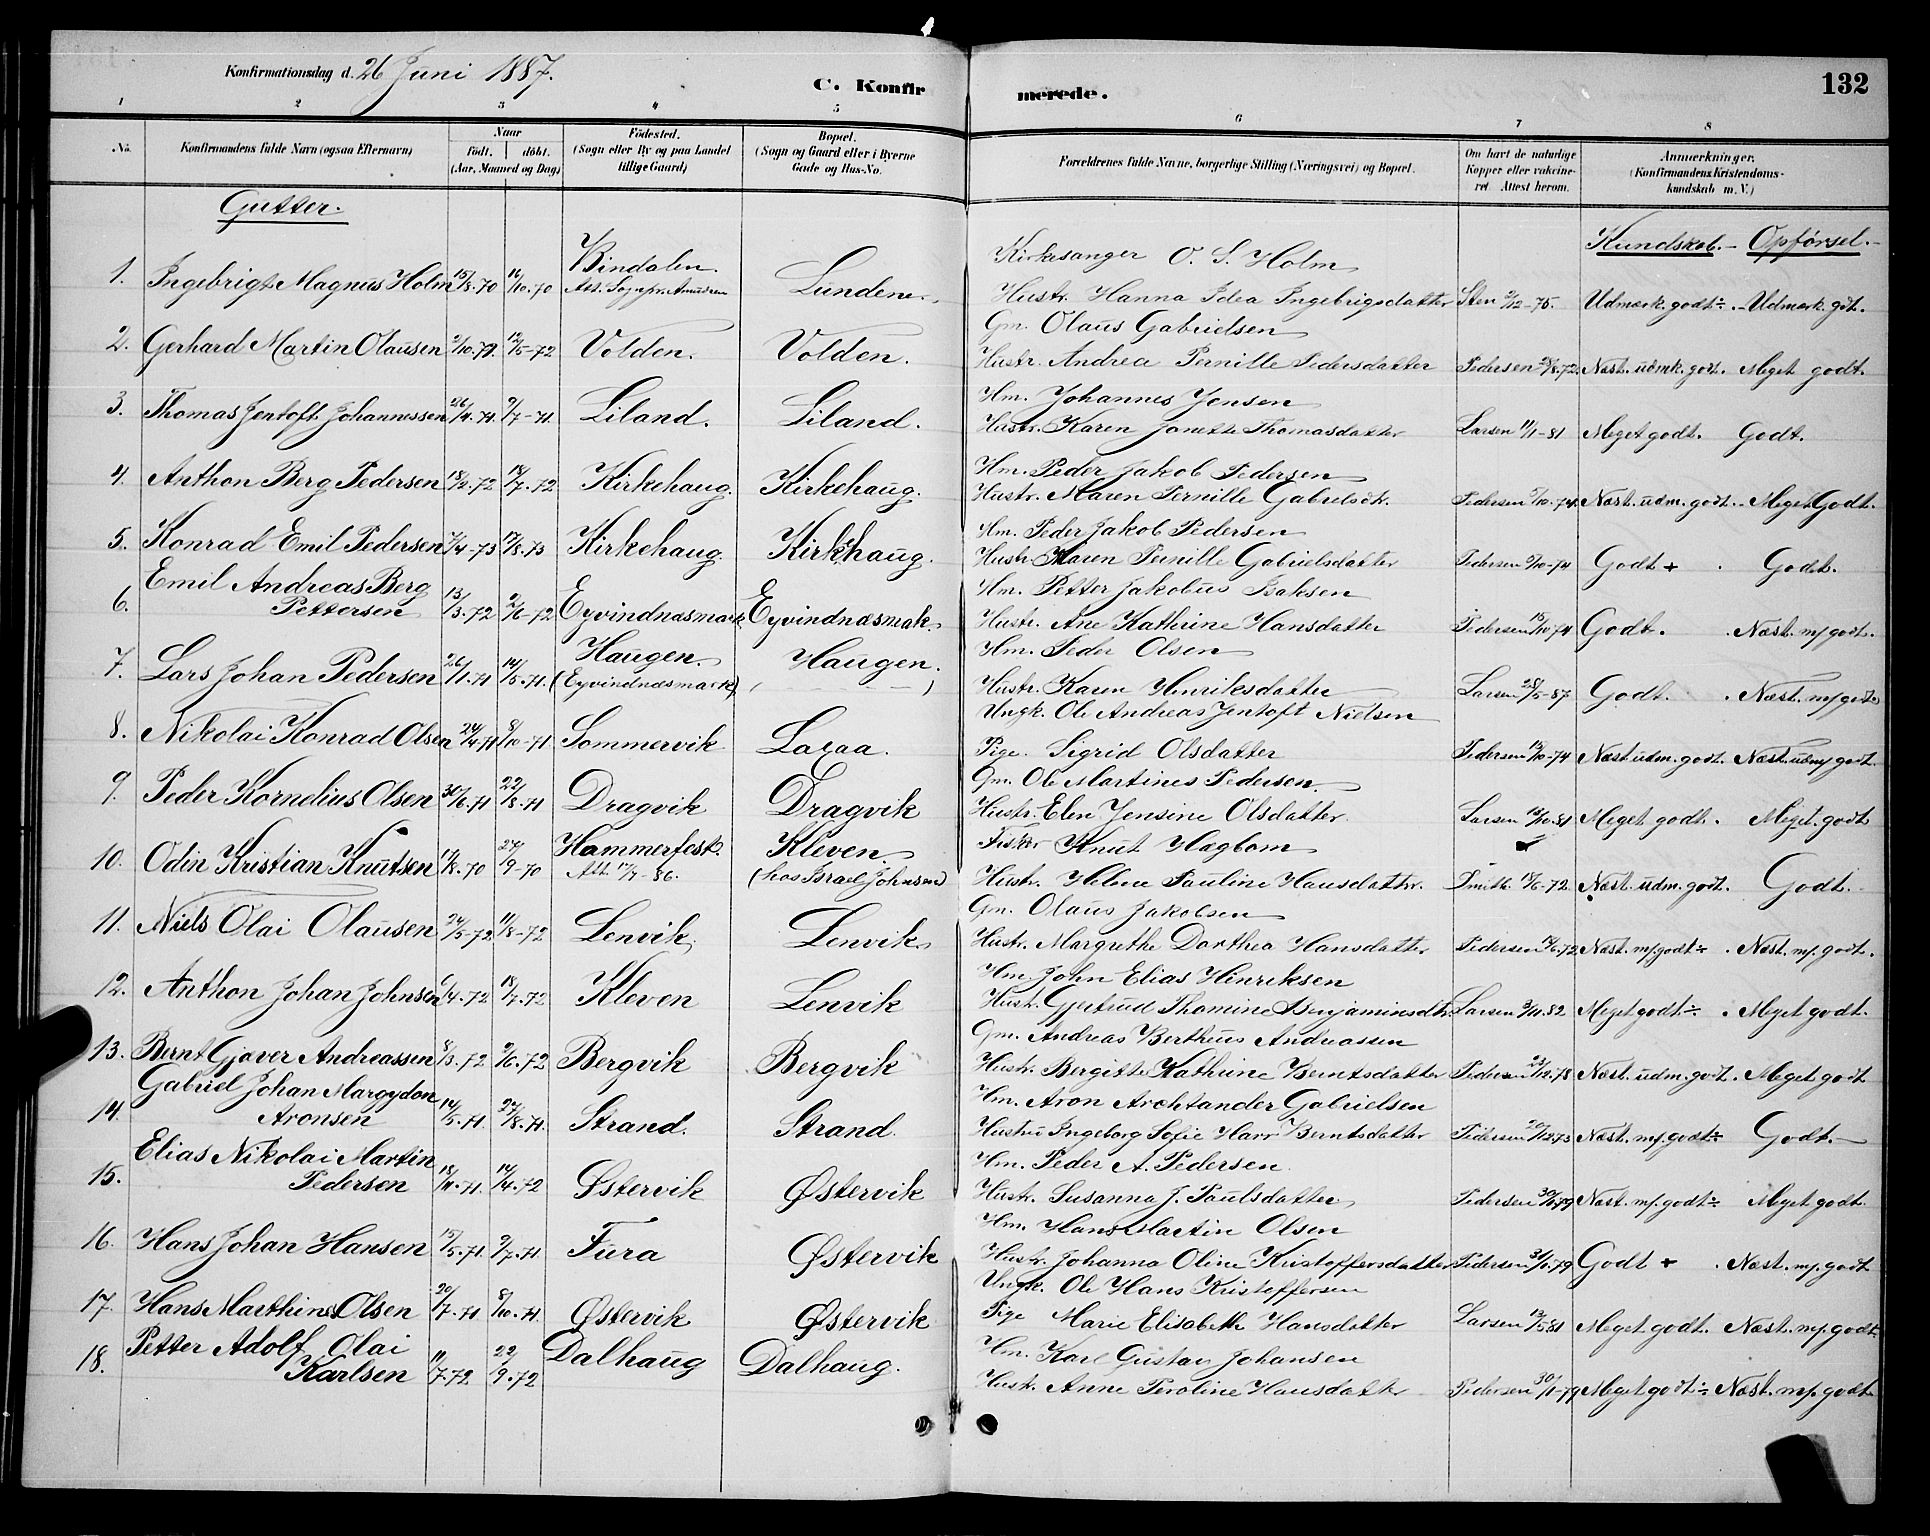 Konfirmationsdag d. 26 Juni 1887.
C. Konfirmerede.
132
1 2 3 4 5 6 7 8
No.
Konfirmandens fulde Navn (ogsaa Efternavn)
Naar
födt. döbt.
(Aar, Maaned og Dag)
Födested.
(Sogn eller By og paa Landet
tillige Gaard)
Bopæl.
(Sogn og Gaard eller i Byerne
Gade og Hus-No.
Forældrenes fulde Navne, borgerlige Stilling (Næringsvei) og Bopæl.
Om havt de naturlige
Kopper eller vakcine-
ret. Attest herom.
Anmærkninger.
(Konfirmandens Kristendoms-
kundskab m. V.)
Gutter.
Kundskab. - Opførsel. -
Bindalen. Kirkesanger O. S. Holm
1. Ingebrigt Magnus Holm 15/8.70 11/10.70 Att. Sognepr. Amundsen Lunden. Hustr. Hanna Idea Ingebrigsdatter Sten 9/12-75. Udmærk. godt ÷. - Udmærk. gdt.
Gm. Olaus Gabrielsen
2. Gerhard Martin Olausen 9/10.71. 12/5-72 Volden. Volden. Hustr. Andrea Pernille Pedersdatter Pedersen 28/8.72. Næst. udmk. godt. Meget godt.
Hm. Johannes Jensen
3. Thomas Jentoft Johannessen 26/4.71. 9/7-71. Liland. Liland. Hustr. Karen Janette Thomasdatter Larsen 11/1-81 Meget godt. Godt.
Hm. Peder Jakob Pedersen
4. Anthon Berg Pedersen 18/2.72 18/7.72 Kirkehaug. Kirkehaug. Hustr. Maren Pernille Gabrielsdt. Pedersen 5/10-74. Næst. udm. godt. - Meget Godt.
Hm. Peder Jakob Pedersen
5. Konrad Emil Pedersen 7/4-73 17/8.73 Kirkehaug. Kirkehaug. Hustr. Maren Pernille Gabrielsdatter Pedersen 5/10-74 Godt + . Godt.
Emil Andreas Berg Hm. Petter Jakobus Isaksen
6. Pettersen 13/3.72 2/6-72 Eyvindnæsmark Eyvindnæsmak. Hustr. Ane Kathrine Hansdatter Pedersen 15/10 74 Godt. . Næst. m/godt.
Haugen. Hm. Peder Olsen
7. Lars Johan Pedersen 26/1.71 14/5.71. (Eyvindnæsmark) Haugen. ( - - - ) Hustr. Karen Henriksdatter Larsen 28/5-87 Godt. . Næst. m/godt.
Ungk. Ole Andreas Jentoft Nielsen
8. Nikolai Konrad Olsen 24/4.71 8/10-71 Sommervik Laxaa. Pige. Sigrid Olsdatter Pedersen 18/10-74 Næst udm. godt. Næst. udm godt.
Gm. Ole Martines Pedersen
9. Peder Kornelius Olsen 30/6.71 22/8.71 Dragvik Dragvik Hustr. Elen Jensine Olsdatter. Larsen 18/10.81 Meget godt. Meget. godt
Hammerfest. Kleven. Fisker Knut Hægbom
10. Odin Kristian Knutsen 17/8.70 27/9-70 Att. 17/7-86. (hos Israel Johnsen) Hustr. Helene Pauline Hansdatter. Smith 15/6-72. Næst. udm. godt. Godt.
Gm. Olaus Jakobsen
11. Niels Olai Olausen 24/5-72 11/8-72 Lenvik, Lenvik Hustr. Margrethe Dorthea Hansdatter Pedersen 15/6.72 Næst. m/.godt ÷ . Næst. m/. godt.
Hm. John Elias Hinriksen
12. Anthon Johan Johnsen 6/4.72 18/7.72 Kleven Lenvik Hust. Gertrud Thomine Benjaminsdtr. Larsen 3/11.82 Meget godt ÷. . Meget godt.
Gm. Andreas Bertheus Andreassen
13. Bernt Gjæver Andreassen 8/3.72 2/6.72 Bergvik Bergvik Hustr. Bergitte Kathrine Berntsdatter Pedersen 23/12.78 Næst. udm. godt. Meget godt
Gabriel Johan Margydon Hm. Aron Archtander Gabrielsen
14. Aronsen 14/5.71. 27/8.71. Strand. Strand. Hustru Ingeborg Sofie Harr Berntsdatter Pedersen 20/12.73 Næst. m/.godt ÷ Godt.
Elias Nikolai Martin Hm. Peder A. Pedersen
15. Pedersen 18/11.71. 14/4.72 Østervik Østervik Hustr. Susanna J. Paulsdatter Pedersen 30/1.79 Næst. m/.godt ÷ Meget godt.
Hm. Hans Martin Olsen
16. Hans Johan Hansen 15/5.71. 9/7.71 Fura Østervik Hustr. Johanna Oline Kristoffersdatter Pedersen 31/1.79 Godt + . Næst. m/. godt
Ungk. Ole Hans Kristoffersen
17. Hans Marthines Olsen 20/7.71 8/10.71. Østervik Østervik Pige Marie Elisabeth Hansdatter Larsen 13/5 81 Meget godt. Næst. m/. godt
Petter Adolf Olai Hm. Karl Gustav Johansen
18. Karlsen 11/7.72 22/9.72 Dalhaug Dalhaug. Hustr. Anne Peroline Hansdatter Pedersen 30/1-79 Meget godt ÷ Næst. m/. godt.